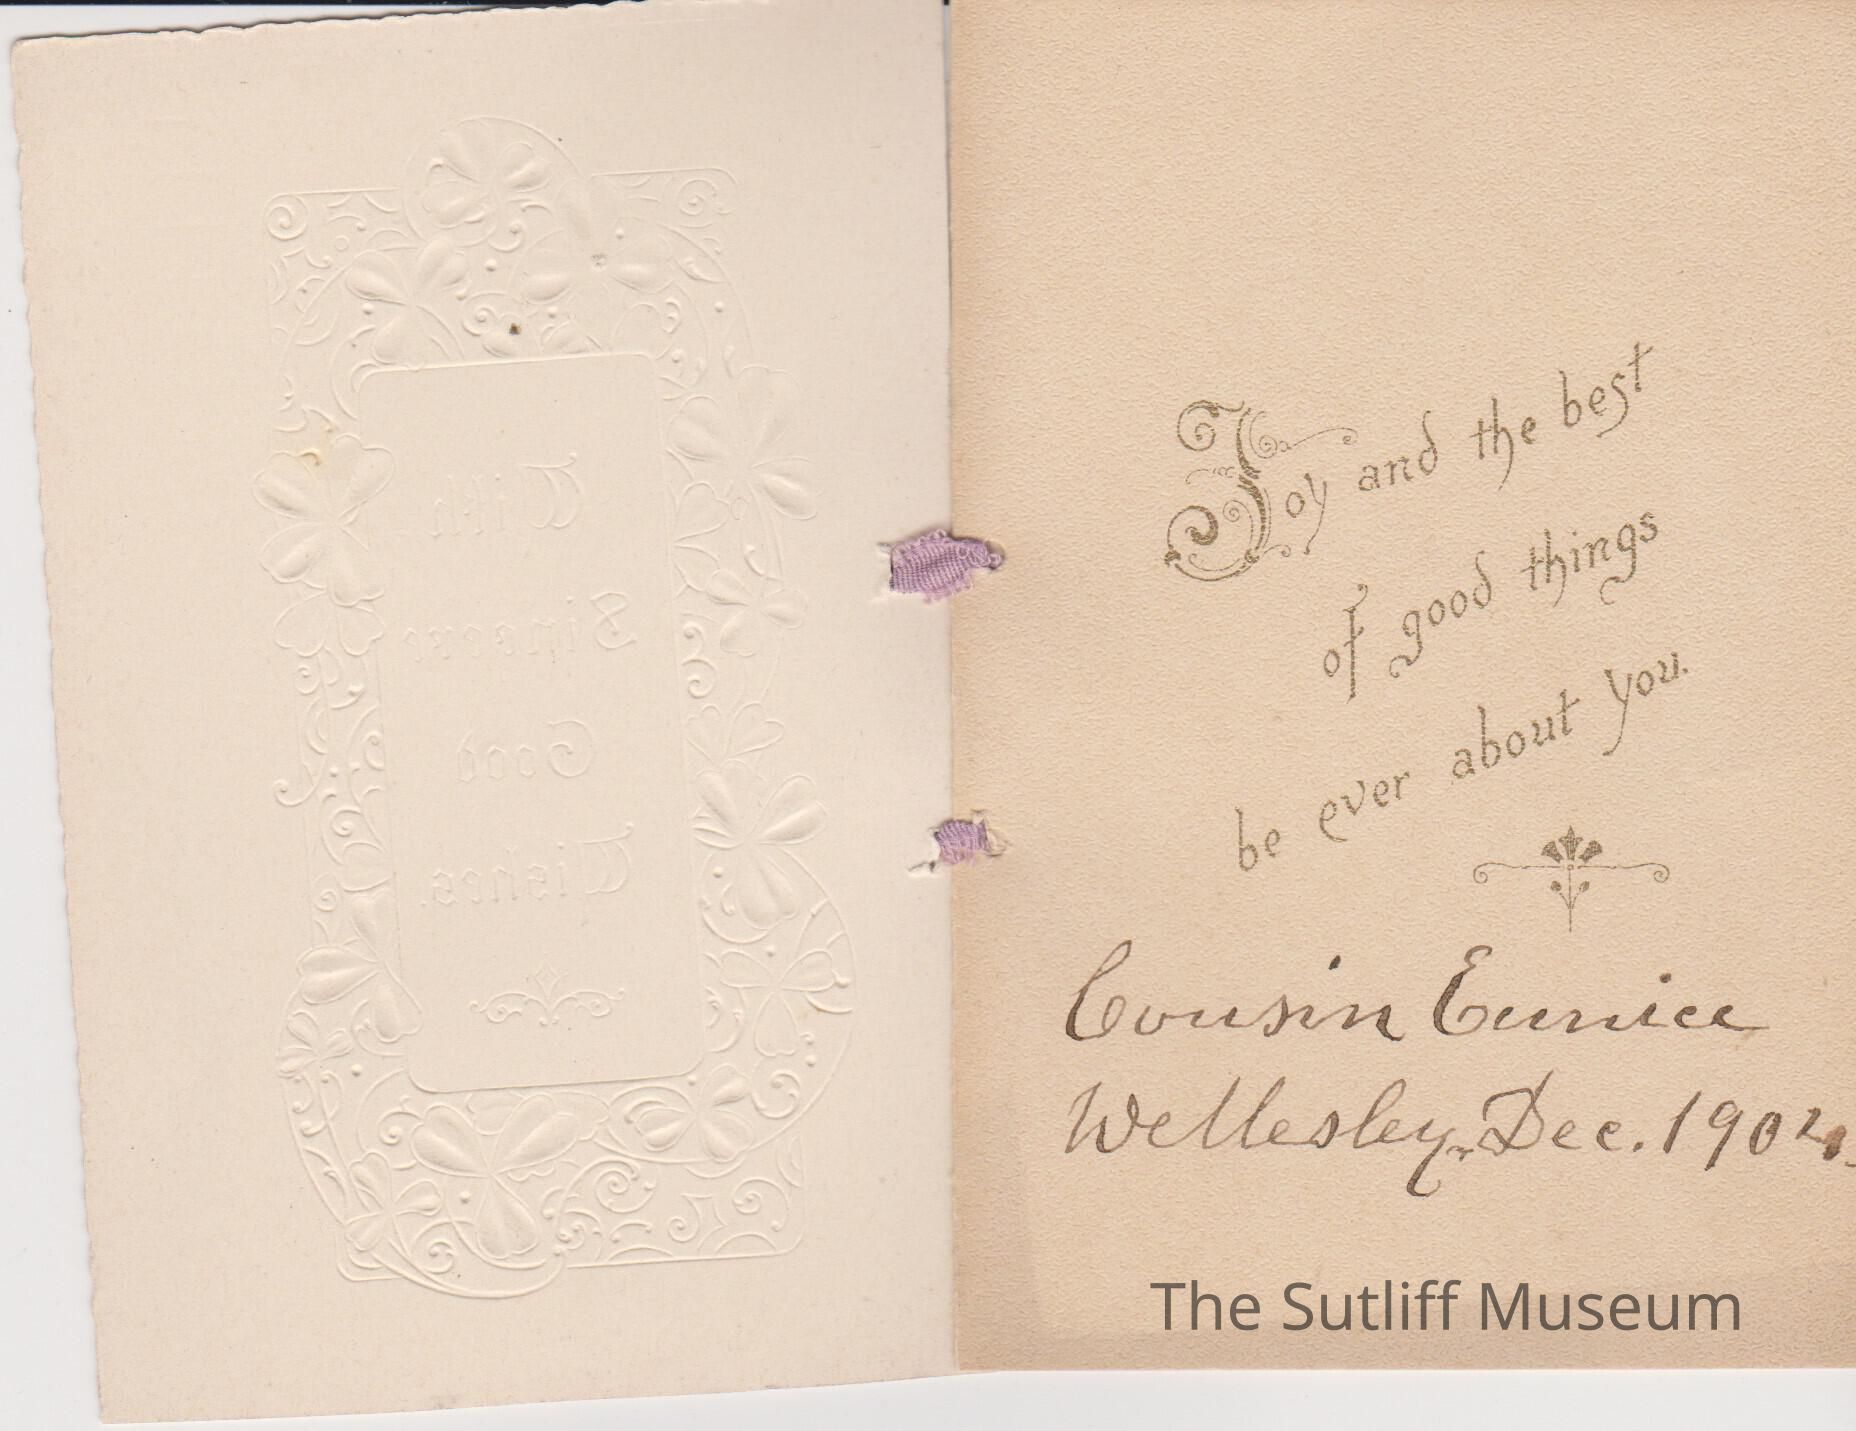 With
Sincere
Good
Wishes.
Joy and the best
of good things
be ever about you.
Cousin Eunice
Wellesley, Dec. 1902.
The Sutliff Museum